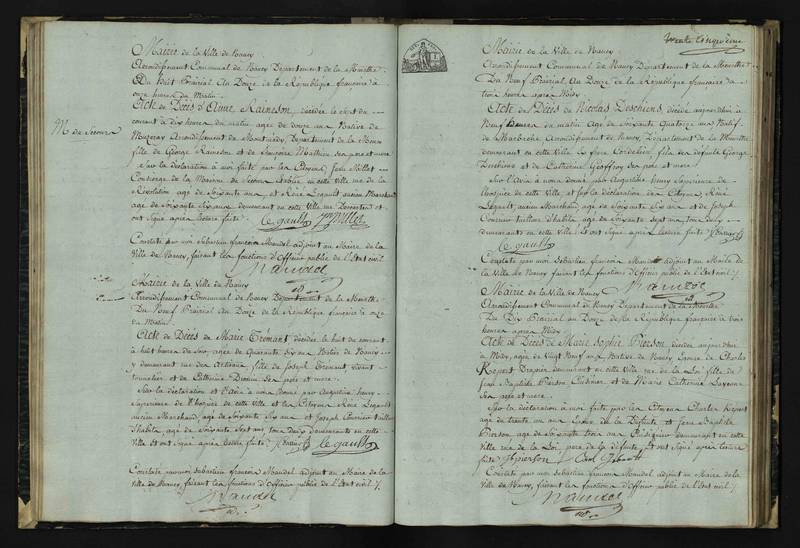 Mairie de la Ville de Nancy
Arrondissement Communal de Nancy Département de la Meurthe
Du huit Prairial An Douze de la République française à
onze heures du Matin
Acte de Décès d'Anne Raineson, décédée le sept du
courant à dix heures du matin agée de douze ans Native de
Arrondissement de Montmédy, Département de la Meuse
fille de George Raineson et de françoise Mathieu ses pere et mere
Sur la déclaration à moi faite par les Citoyens Jean Millet
Concierge de la Maison de Secours établie en cette ville rue de la
Révolution agé de soixante ans, et René Legault ancien Marchand
agé de soixante six ans demeurant en cette Ville rue
ont signé après lecture faite le gault Millet
Constaté par moi Sebastien françois Mandel adjoint au Maire de la
Ville de Nancy, faisant les fonctions d'Officier public de l'Etat civil
Mandel
M. de Secours
Mairie de la Ville de Nancy
Arrondissement Communal de Nancy Département de la Meurthe
Du Neuf Prairial An Douze de la République française à onze
du Matin
Acte de Décès de Marie Trémant décédée le huit du courant
à huit heures du soir, agée de Quarante six ans Native de Nancy
y demeurant rue des Artisans, fille de Joseph Tremant, vivant
tonnelier et de Catherine ses pere et mere
Sur la déclaration et l'avis à nous donné par Augustine henry
Superieure de l'hospice de cette ville et les Citoyens René Legault
ancien Marchand, agé de soixante six ans et Joseph Courrier tailleur
d'habits, agé de soixante sept ans, tous deux demeurants en cette
Ville et ont signé après lecture faite le gault
Constaté par moi Sebastien françois Mandel adjoint au Maire de la
Ville de Nancy, faisant les fonctions d'Officier public de l'Etat civil
Mandel
trente cinquième
Mairie de la Ville de Nancy
Arrondissement Communal de Nancy Département de la Meurthe
Du Neuf Prairial An Douze de la République française à
trois heures après Midy
Acte de Décès de Nicolas Deschiens, décédé aujourd'hui à
Neuf heures du matin agé de soixante Quatorze ans Natif
de Arrondissement de Nancy, Département de la Meurthe
demeurant en cette Ville fils des defunts George
Deschiens et de Catherine Geoffroy ses pere et mere
Sur l'avis à nous donné par Augustine henry Superieure de
l'hospice de cette Ville et sur la déclaration des Citoyens René
Legault, ancien Marchand agé de soixante six ans et de Joseph
Courrier tailleur d'habits agé de soixante sept ans, tous deux
demeurants en cette Ville et ont signé après lecture faite
le gault
Constaté par moi Sebastien françois Mandel adjoint au Maire de
la Ville de Nancy faisant les fonctions d'Officier public de l'Etat civil
Mandel
Mairie de la Ville de Nancy
Arrondissement Communal de Nancy Département de la Meurthe
Du Dix Prairial An Douze de la République française à trois
heures après Midy
Acte de Décès de Marie Sophie Pierson décédée aujourd'hui
à Midy, agée de Vingt Neuf ans Native de Nancy Epouse de Charles
Drapier demeurant en cette Ville rue de la Loi fille de
Jean Baptiste Pierson et de Marie Catherine
ses pere et mere
Sur la déclaration à moi faite par les Citoyens Charles
agé de trente un ans Epoux de la Défunte et Jean Baptiste
Pierson agé de soixante trois ans demeurant en cette
Ville rue de la Loi, pere de la défunte et ont signé après lecture
faite
Constaté par moi Sebastien françois Mandel adjoint au Maire de la
Ville de Nancy, faisant les fonctions d'Officier public de l'Etat civil
Mandel